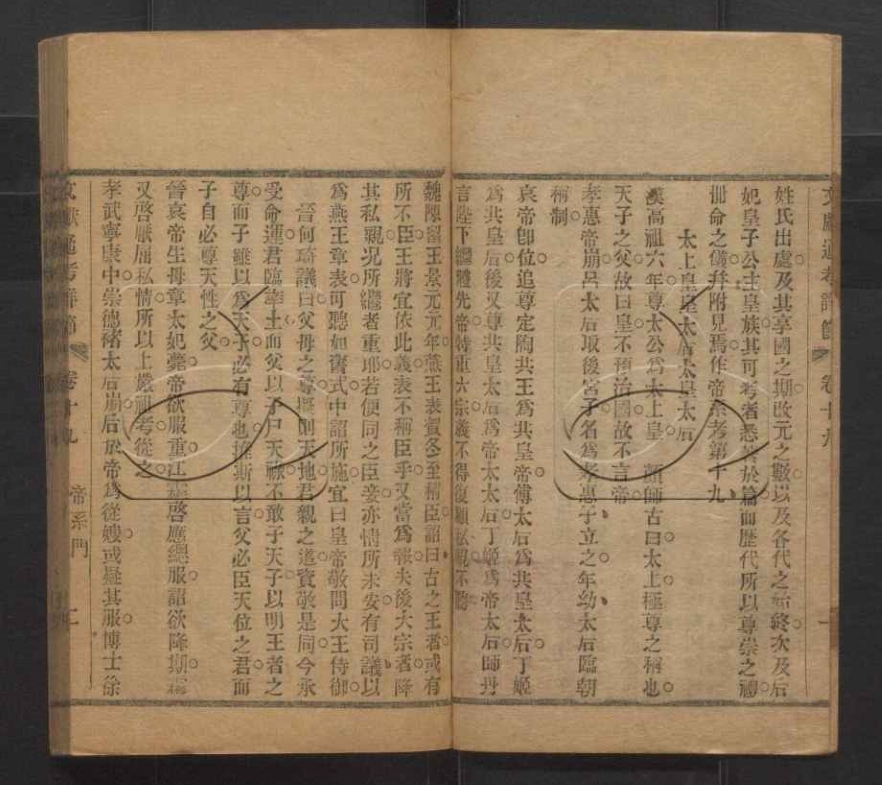 文獻通考詳節 卷十九 一
姓氏出處及其享國之期改元之數以及各代之始終次及后
妃皇子公主皇族其可考者悉著於篇而歷代所以尊崇之禮
冊命之儀并附見焉作帝系考第十九
太上皇皇太后太皇太后
漢高祖六年尊太公爲太上皇 顏師古曰太上極尊之稱也
天子之父故曰皇不預治國故不言帝
孝惠帝崩呂太后取後宮子名爲孝惠子立之年幼太后臨朝
稱制
哀帝卽位追尊定陶共王爲共皇帝傅太后爲共皇太后丁姬
爲共皇后後又尊共皇太后爲帝太太后丁姬爲帝太后師丹
言陛下繼體先帝持重大宗義不得復顧私親不聽
魏陳留王景元元年燕王表賀冬至稱臣詔曰古之王者或有
所不臣王將宜依此義表不稱臣乎又當爲報夫後大宗者降
其私親况所繼者重耶若便同之臣妾亦情所未安有司議以
爲燕王章表可聽如舊式中詔所施宜曰皇帝敬問大王侍御
晉何琦議曰父母之尊擬則天地君親之道資敬是同今承
受命運君臨率土而父以子尸天祿不敢子天子以明王者之
尊而子雖以爲天子必有尊也推斯以言父必臣天位之君而
子自必尊天性之父
晉哀帝生母章太妃薨帝欲服重江虨啓應緦服詔欲降期虨
又啓厭屈私情所以上嚴祖考從之
孝武寧康中崇德褚太后崩后於帝爲從嫂或疑其服博士徐
文獻通考詳節 卷十九 帝系門 二